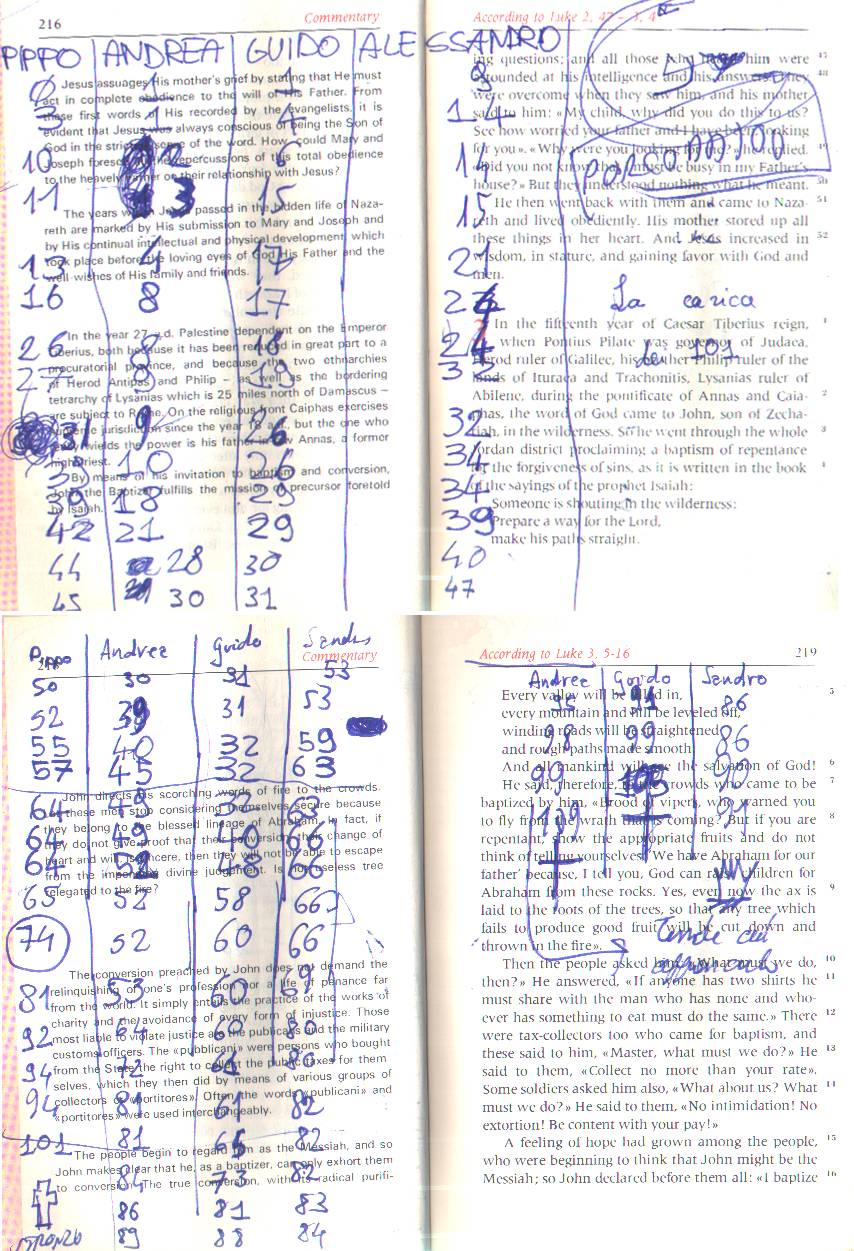 216
Commentary
PIPPO ANDREA GUIDO ALESSANDRO
Jesus assuages His mother's grief by stating that He must
act in complete obedience to the will of His Father. From
these first words of His recorded by the evangelists, it is
evident that Jesus was always conscious of being the Son of
God in the strict sense of the word. How could Mary and
Joseph foresee the repercussions of this total obedience
to the heavely Father on their relationship with Jesus?
The years which Jesus passed in the hidden life of Naza-
reth are marked by His submission to Mary and Joseph and
by His continual intellectual and physical development, which
took place before the loving eyes of God His Father and the
well-wishes of His family and friends.
In the year 27 a.d. Palestine dependent on the Emperor
Tiberius, both because it has been reduced in great part to a
procuratorial province, and because the two ethnarchies
of Herod Antipas and Philip – as well as the bordering
tetrarchy of Lysanias which is 25 miles north of Damascus –
are subject to Rome. On the religious front Caiphas exercises
supreme jurisdiction since the year 18 a.d., but the one who
really wields the power is his father in law Annas, a former
high priest.
By means of his invitation to baptism and conversion,
John the Baptizer fulfills the mission of precursor foretold
by Isaiah.
10
11 13 15
13 4 17
16 8 17
26 8 18
31 9 26
10 26
39 18 29
42 21 29
44 28 30
45 30 31
According to Luke 2, 47 – 3, 4
ing questions; and all those who him were 47
astounded at his intelligence and his answers. They 48
were overcome when they saw him, and his mother
said to him: «My child, why did you do this to us?
See how worried your father and I have been looking
for you». «Why were you looking for me?» he replied. 49
«Did you not know that I must be busy in my Father's
house?» But they understood nothing what he meant. 50
He then went back with them and came to Naza- 51
reth and lived obediently. His mother stored up all
these things in her heart. And Jesus increased in 52
wisdom, in stature, and gaining favor with God and
men.
La carica
dei 101
In the fifteenth year of Caesar Tiberius reign, 1
when Pontius Pilate was governor of Judaea,
Herod ruler of Galilee, his brother Philip ruler of the
lands of Ituraea and Trachonitis, Lysanias ruler of
Abilene, during the pontificate of Annas and Caia- 2
phas, the word of God came to John, son of Zecha-
riah, in the wilderness. So he went through the whole 3
Jordan district proclaiming a baptism of repentance
for the forgiveness of sins, as it is written in the book 4
of the sayings of the prophet Isaiah:
Someone is shouting in the wilderness:
Prepare a way for the Lord,
make his paths straight.
14
14
15
21
32
34
34
39
40
47
Pippo Andrea Guido Sandro
Commentary
50 30 31 53
52 39 31 53
55 40 32 59
57 45 32 63
John directs his scorching words of fire to the crowds.
Let these men stop considering themselves secure because
they belong to the blessed lineage of Abraham. In fact, if
they do not give proof that their conversion, their change of
heart and will, is sincere, then they will not be able to escape
from the impending divine judgement. Is not useless tree
relegated to the fire?
64 48
64 49
64
65 52 58 66
74 52 60 66
The conversion preached by John does not demand the
relinquishing of one's profession nor a life of penance far
from the world. It simply entails the practice of the works of
charity and the avoidance of every form of injustice. Those
most liable to violate justice are the publicans and the military
customs officers. The «pubblicani» were persons who bought
from the State the right to collect the public taxes for them
selves, which they then did by means of various groups of
collectors or «portitores». Often the words «publicani» and
«portitores» were used interchangeably.
81 53 60
92 64
94 72
94 81 61 82
101 81 65 82
The people begin to regard him as the Messiah, and so
John makes clear that he, as a baptizer, can only exhort them
to conversion. The true conversion, with its radical purifi-
84 73
86 81 83
89 88 84
STRONZO
According to Luke 3, 5-16
219
Andrea Guido Sandro
95 91 86
98 99 86
99 103 99
Every valley will be filled in, 5
every mountain and hill be leveled off,
winding roads will be straightened
and rough paths made smooth.
And all mankind will see the salvation of God! 6
He said, therefore, to the crowds who came to be 7
baptized by him, «Brood of vipers, who warned you
to fly from the wrath that is coming? But if you are 8
repentant, show the appropriate fruits and do not
think of telling yourselves 'We have Abraham for our
father' because, I tell you, God can raise children for
Abraham from these rocks. Yes, even now the ax is 9
laid to the roots of the trees, so that any tree which
fails to produce good fruit will be cut down and
thrown in the fire».
Then the people asked him: «What must we do, 10
then?» He answered, «If anyone has two shirts he 11
must share with the man who has none and who-
ever has something to eat must do the same.» There 12
were tax-collectors too who came for baptism, and
these said to him, «Master, what must we do?» He 13
said to them, «Collect no more than your rate».
Some soldiers asked him also, «What about us? What 14
must we do?» He said to them, «No intimidation! No
extortion! Be content with your pay!»
A feeling of hope had grown among the people, 15
who were beginning to think that John might be the
Messiah; so John declared before them all: «I baptize 16